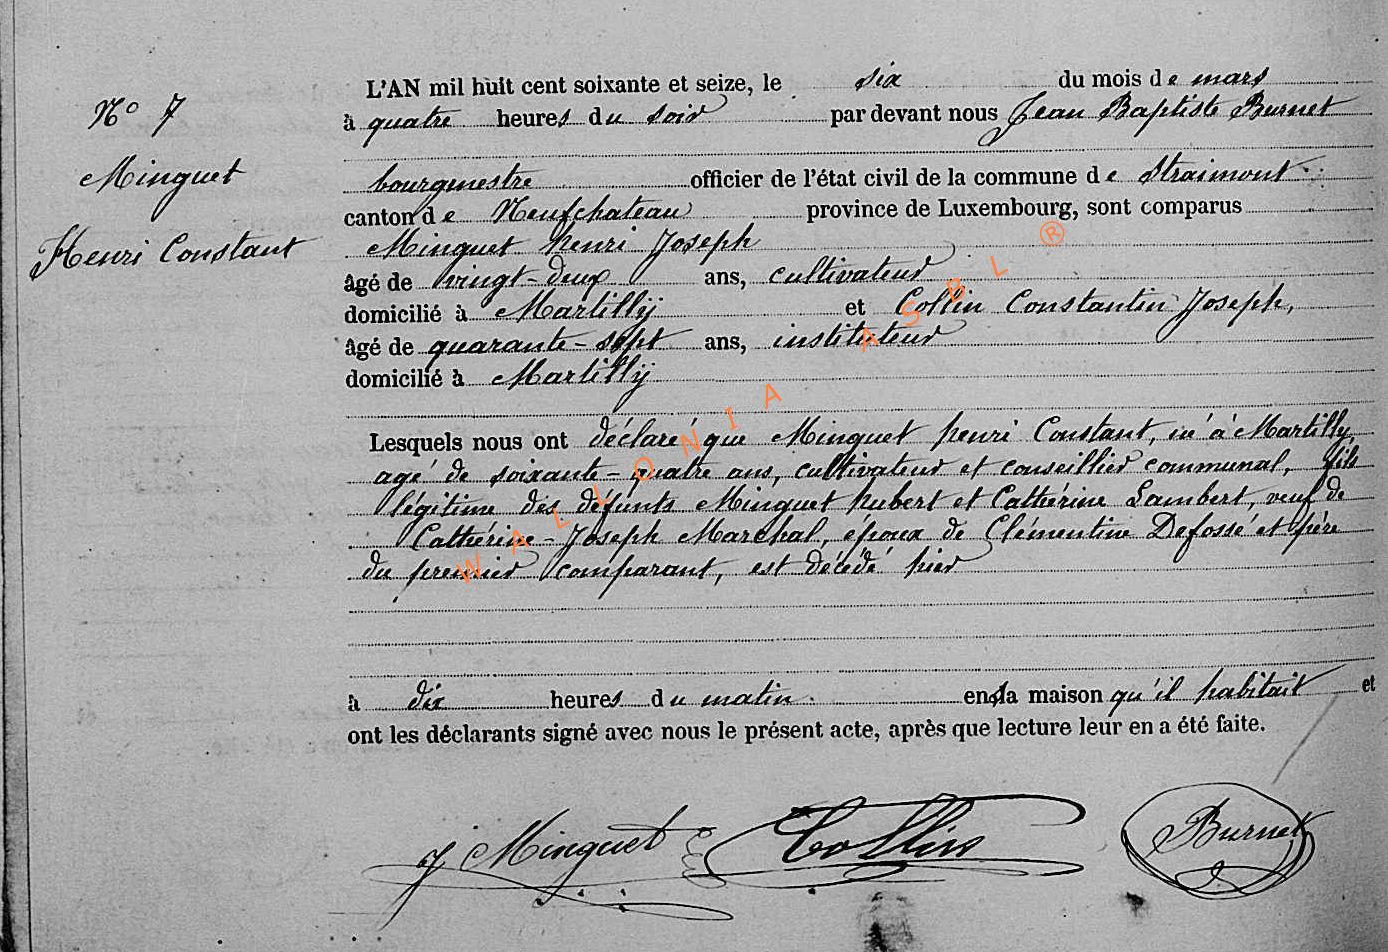 N° 7
Minguet
Henri Constant
L'AN mil huit cent soixante et seize, le six du mois de mars
à quatre heures du soir par devant nous Jean Baptiste Burnet
bourgmestre officier de l'état civil de la commune de Straimont
canton de Neufchateau province de Luxembourg, sont comparus
Minguet henri Joseph
âgé de vingt-deux ans, cultivateur
domicilié à Martilly et Collin Constantin Joseph,
âgé de quarante-sept ans, instituteur
domicilié à Martilly
Lesquels nous ont déclaré que Minguet henri Constant, né à Martilly,
agé de soixante-quatre ans, cultivateur et conseiller communal, fils
légitime des défunts Minguet hubert et Cathérine Lambert, veuf de
Cathérine-Joseph Marchal, époux de Clémentine Defossé et père
du premier comparant, est décédé hier
à dix heures du matin. en la maison qu'il habitait et
ont les déclarants signé avec nous le présent acte, après que lecture leur en a été faite.
J Minguet Collin Burnet
WALLONIA ASBL ®